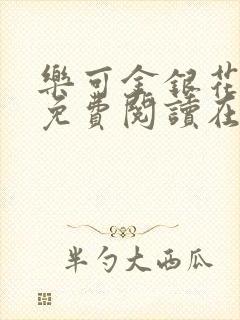 樂可金銀花
免費閱讀在
半勺大西瓜